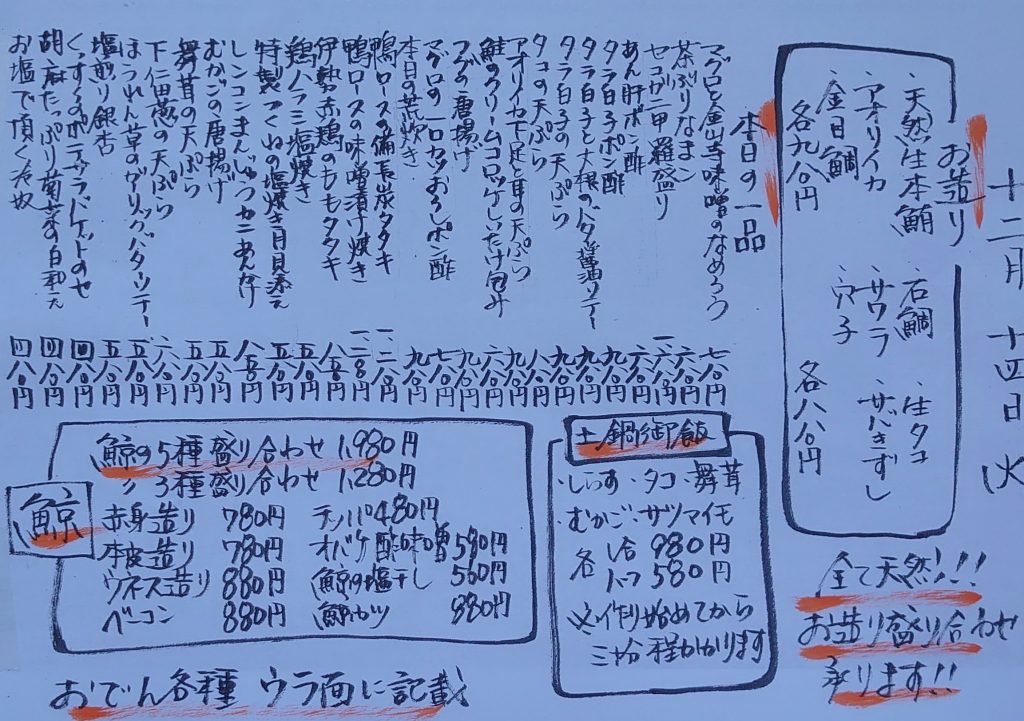 十二月十四日火
お造り
・天然生本鮪
・アオリイカ
・金目鯛
各九八〇円
・石鯛
・サワラ
・穴子
・生タコ
・サバきずし
各八八〇円
全て天然!!!
お造り盛り合わせ
承ります!!
本日の一品
マグロと金山寺味噌のなめろう 七八〇円
茶ぶりなまこ 六八〇円
セコガニ甲羅盛り 一、六八〇円
あん肝ポン酢 六八〇円
タラ白子ポン酢 九八〇円
タラ白子と大根のバター醤油ソテー 九八〇円
タラ白子の天ぷら 九八〇円
タコの天ぷら 八八〇円
アオリイカ下足と耳の天ぷら 九八〇円
鮭のクリームコロッケしいたけ包み 六八〇円
フグの唐揚げ 九八〇円
マグロの一口カツおろしポン酢 七八〇円
本日の荒炊き 九八〇円
鴨ロースの備長炭タタキ 一、二八〇円
鴨ロースの味噌漬け焼き 一、二八〇円
伊勢赤鶏のももタタキ 八八〇円
鶏ハラミ塩焼き 五八〇円
特製つくねの塩焼き月見添え 五八〇円
レンコンまんじゅうカニあんかけ 八八〇円
むかごの唐揚げ 五八〇円
舞茸の天ぷら 五八〇円
下仁田葱の天ぷら 六八〇円
ほうれん草のガーリックバターソテー 五八〇円
塩煎り銀杏 五八〇円
くんすくるポテサラバケットのせ 四八〇円
胡麻たっぷり菊菜の白和え 四八〇円
お塩で頂く冷奴 四八〇円
土鍋御飯
・しらす・タコ・舞茸
むかご・サツマイモ
各 1合 980円
ハーフ 580円
※作り始めてから
三十分程かかります
鯨
鯨の5種盛り合わせ 1,980円
〃 3種盛り合わせ 1,280円
赤身造り 780円
本皮造り 780円
ウネス造り 880円
ベーコン 880円
テッパ 480円
オバケ酢味噌 580円
鯨の塩干し 580円
鯨カツ 880円
おでん各種ウラ面に記載